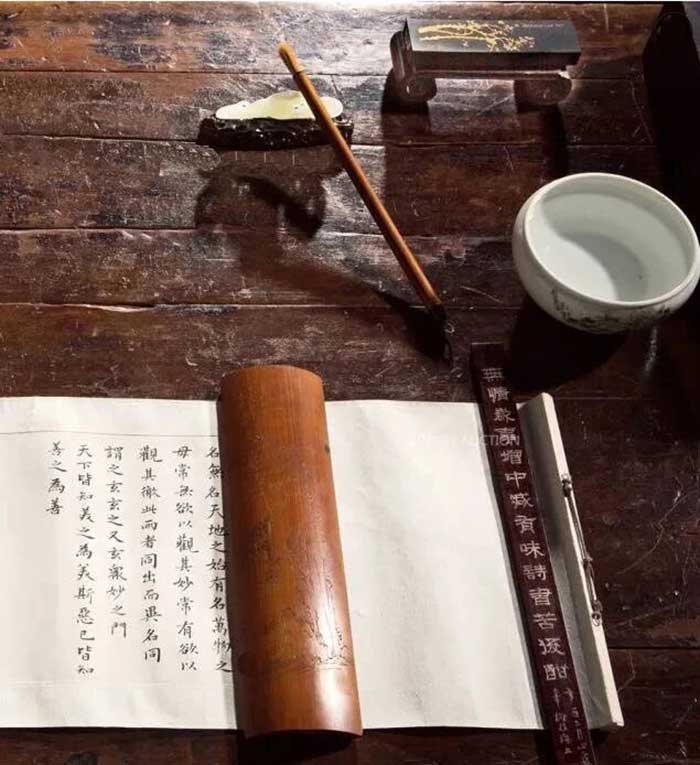 無情歲月增中減有味詩書苦後甜
名無名天地之始有名萬物之
母常无欲以觀其妙常有欲以
觀其徼此兩者同出而異名同
謂之玄玄之又玄衆妙之門
天下皆知美之為美斯惡已皆知
善之為善
AUCTION